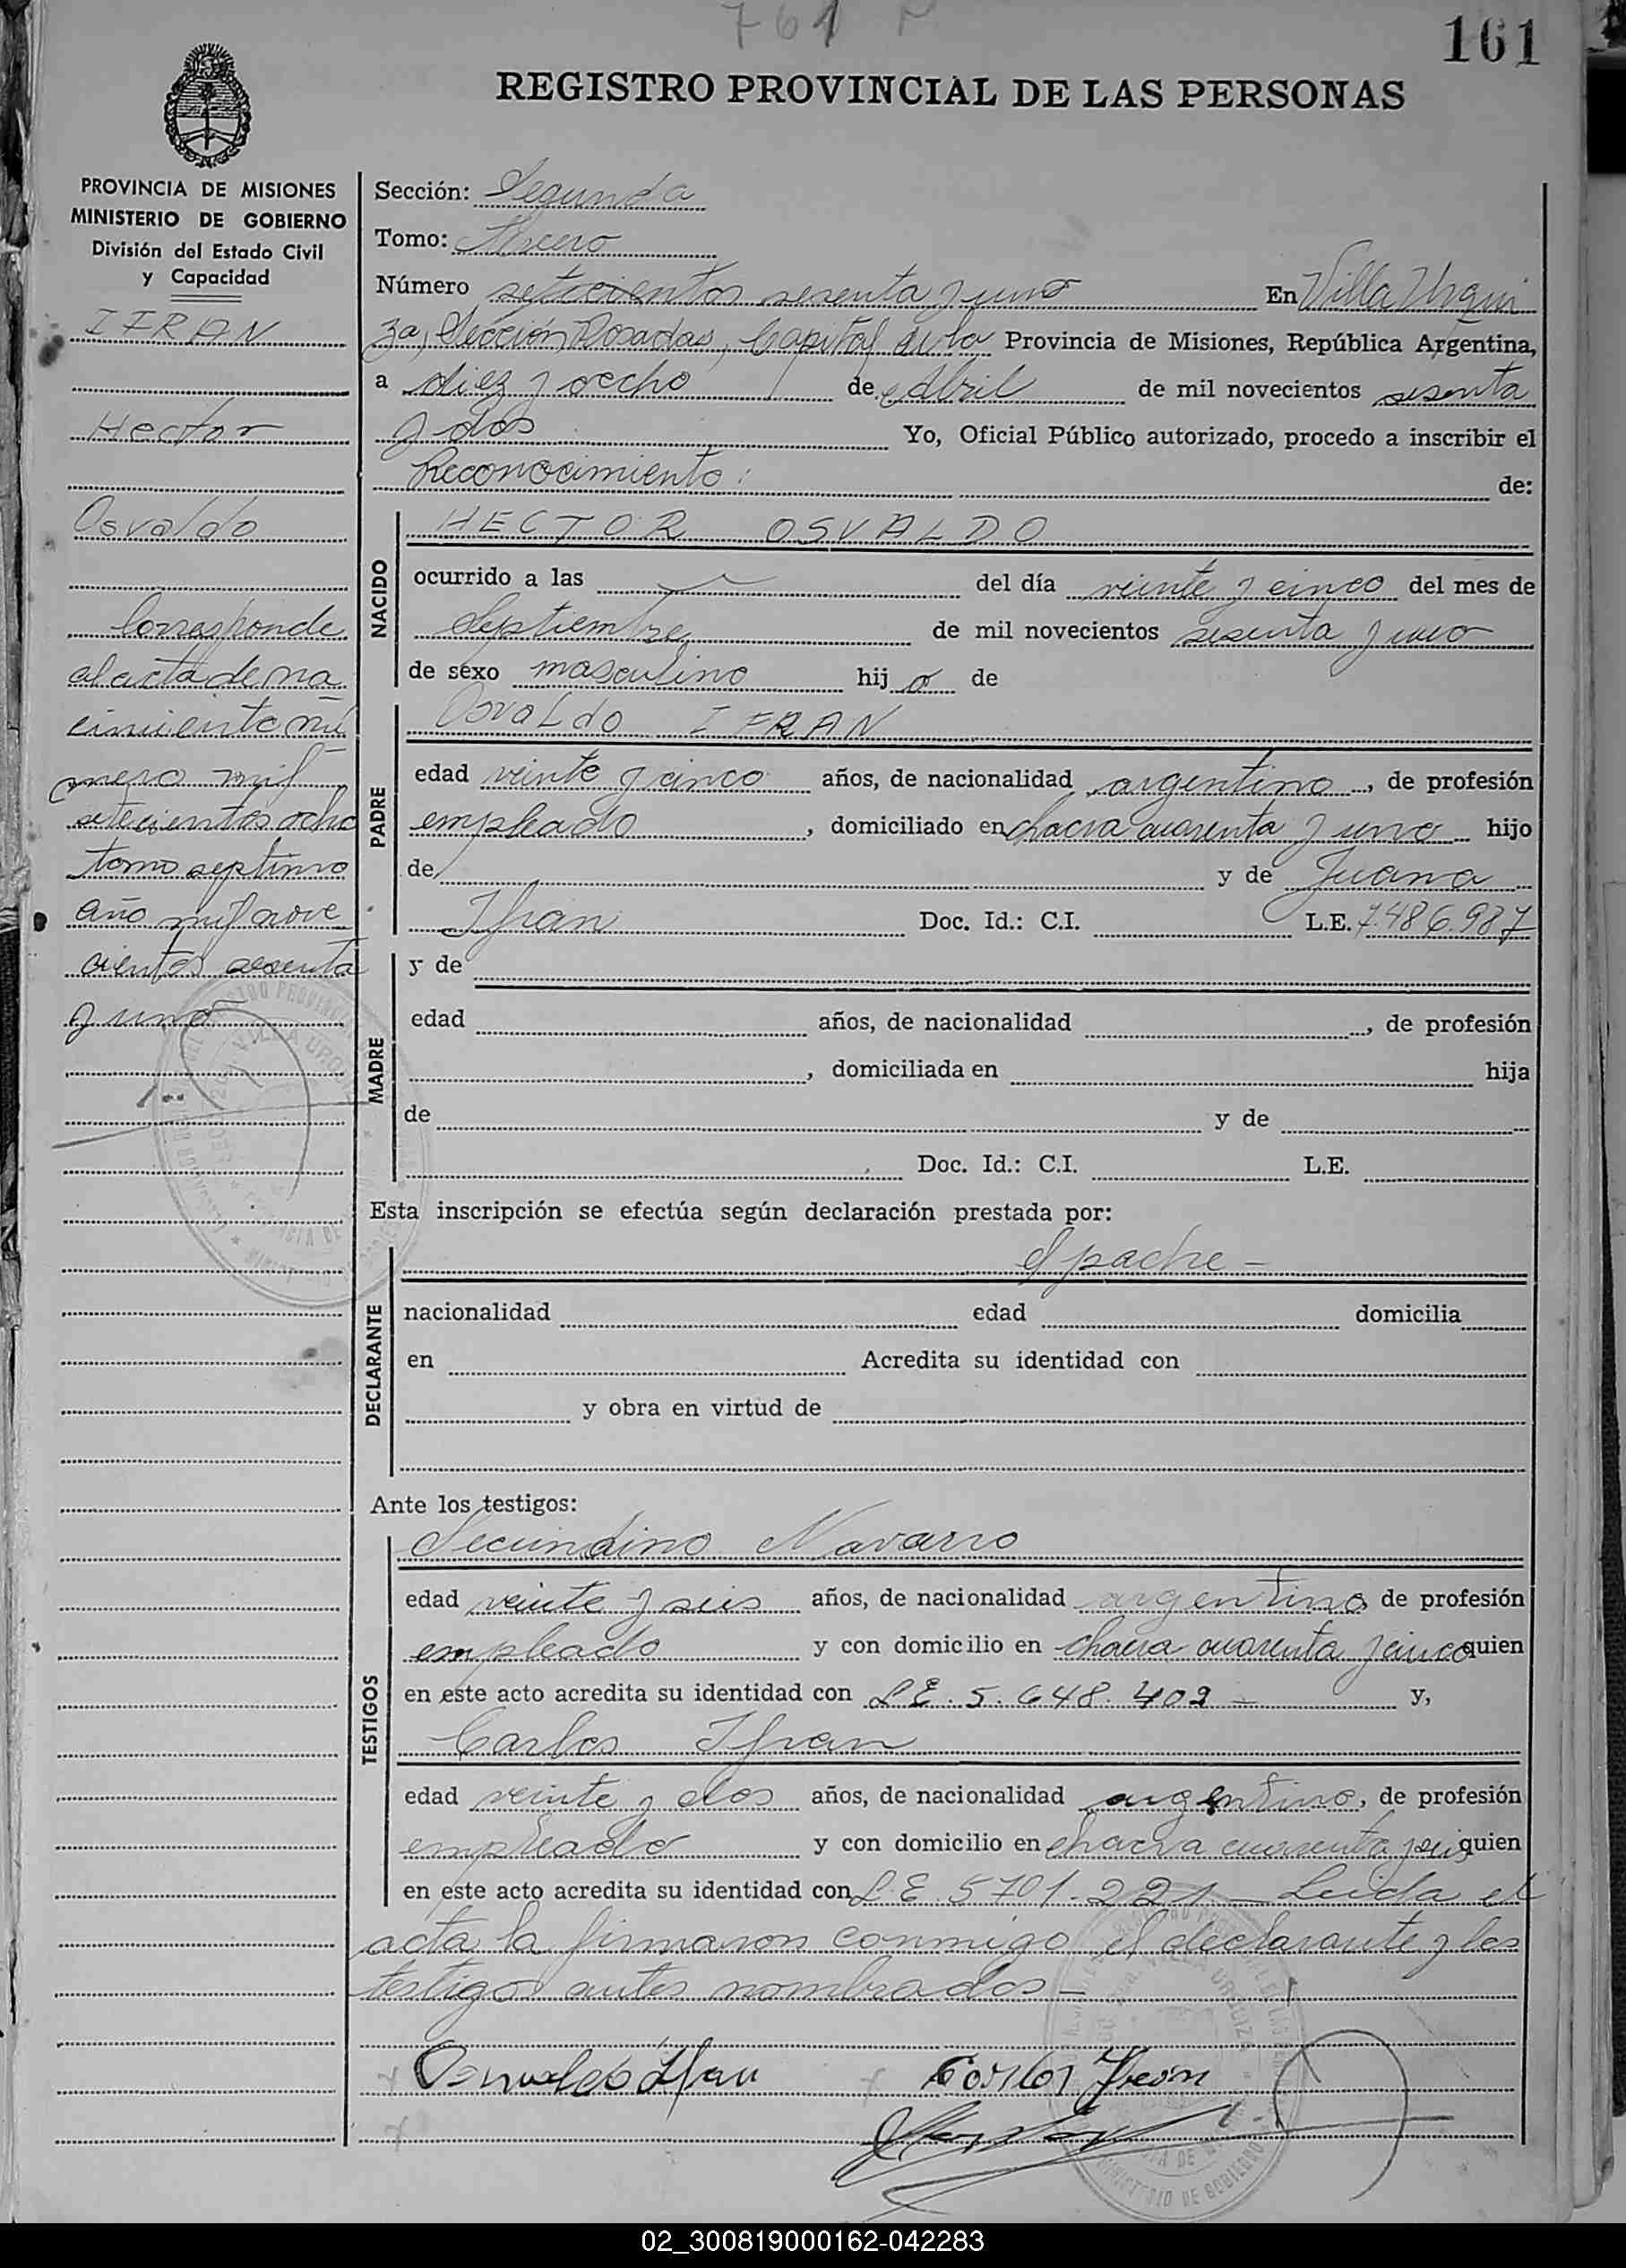 761
161
REGISTRO PROVINCIAL DE LAS PERSONAS
PROVINCIA DE MISIONES
MINISTERIO DE GOBIERNO
División del Estado Civil
y Capacidad
IFRAN
Hector
Osvaldo
Corresponde
al acta de na
cimiento nú
mero mil
setecientos ocho
tomo septimo
año mil nove
cientos sesenta
y uno
Sección: Segunda
Tomo: Tercero
Número setecientos sesenta y uno En Villa Urqui
za, Sección Posadas, Capital de la Provincia de Misiones, República Argentina,
a diez y ocho de Abril de mil novecientos sesenta
y dos Yo, Oficial Público autorizado, procedo a inscribir el
Reconocimiento: de:
NACIDO
HECTOR OSVALDO
ocurrido a las del día veinte y cinco del mes de
Septiembre de mil novecientos sesenta y uno
de sexo masculino hijo de
PADRE
Osvaldo IFRAN
edad veinte y cinco años, de nacionalidad argentino, de profesión
empleado, domiciliado en chacra cuarenta y uno hijo
de y de Juana
Ifran Doc. Id.: C.I. L.E. 7.486.987
MADRE
y de
edad años, de nacionalidad , de profesión
, domiciliada en hija
de y de
Doc. Id.: C.I. L.E.
Esta inscripción se efectúa según declaración prestada por:
DECLARANTE
El padre -
nacionalidad edad domicilia
en Acredita su identidad con
y obra en virtud de
Ante los testigos:
TESTIGOS
Secundino Navarro
edad veinte y seis años, de nacionalidad argentino, de profesión
empleado y con domicilio en chacra cuarenta y cinco quien
en este acto acredita su identidad con L.E. 5.648.402 - y,
Carlos Ifran
edad veinte y dos años, de nacionalidad argentino, de profesión
empleado y con domicilio en chacra cuarenta y seis quien
en este acto acredita su identidad con L.E. 5701.221 - Leida el
acta la firmaron conmigo el declarante y los
testigos antes nombrados -
Osvaldo Ifran Carlos Ifran
02_300819000162-042283